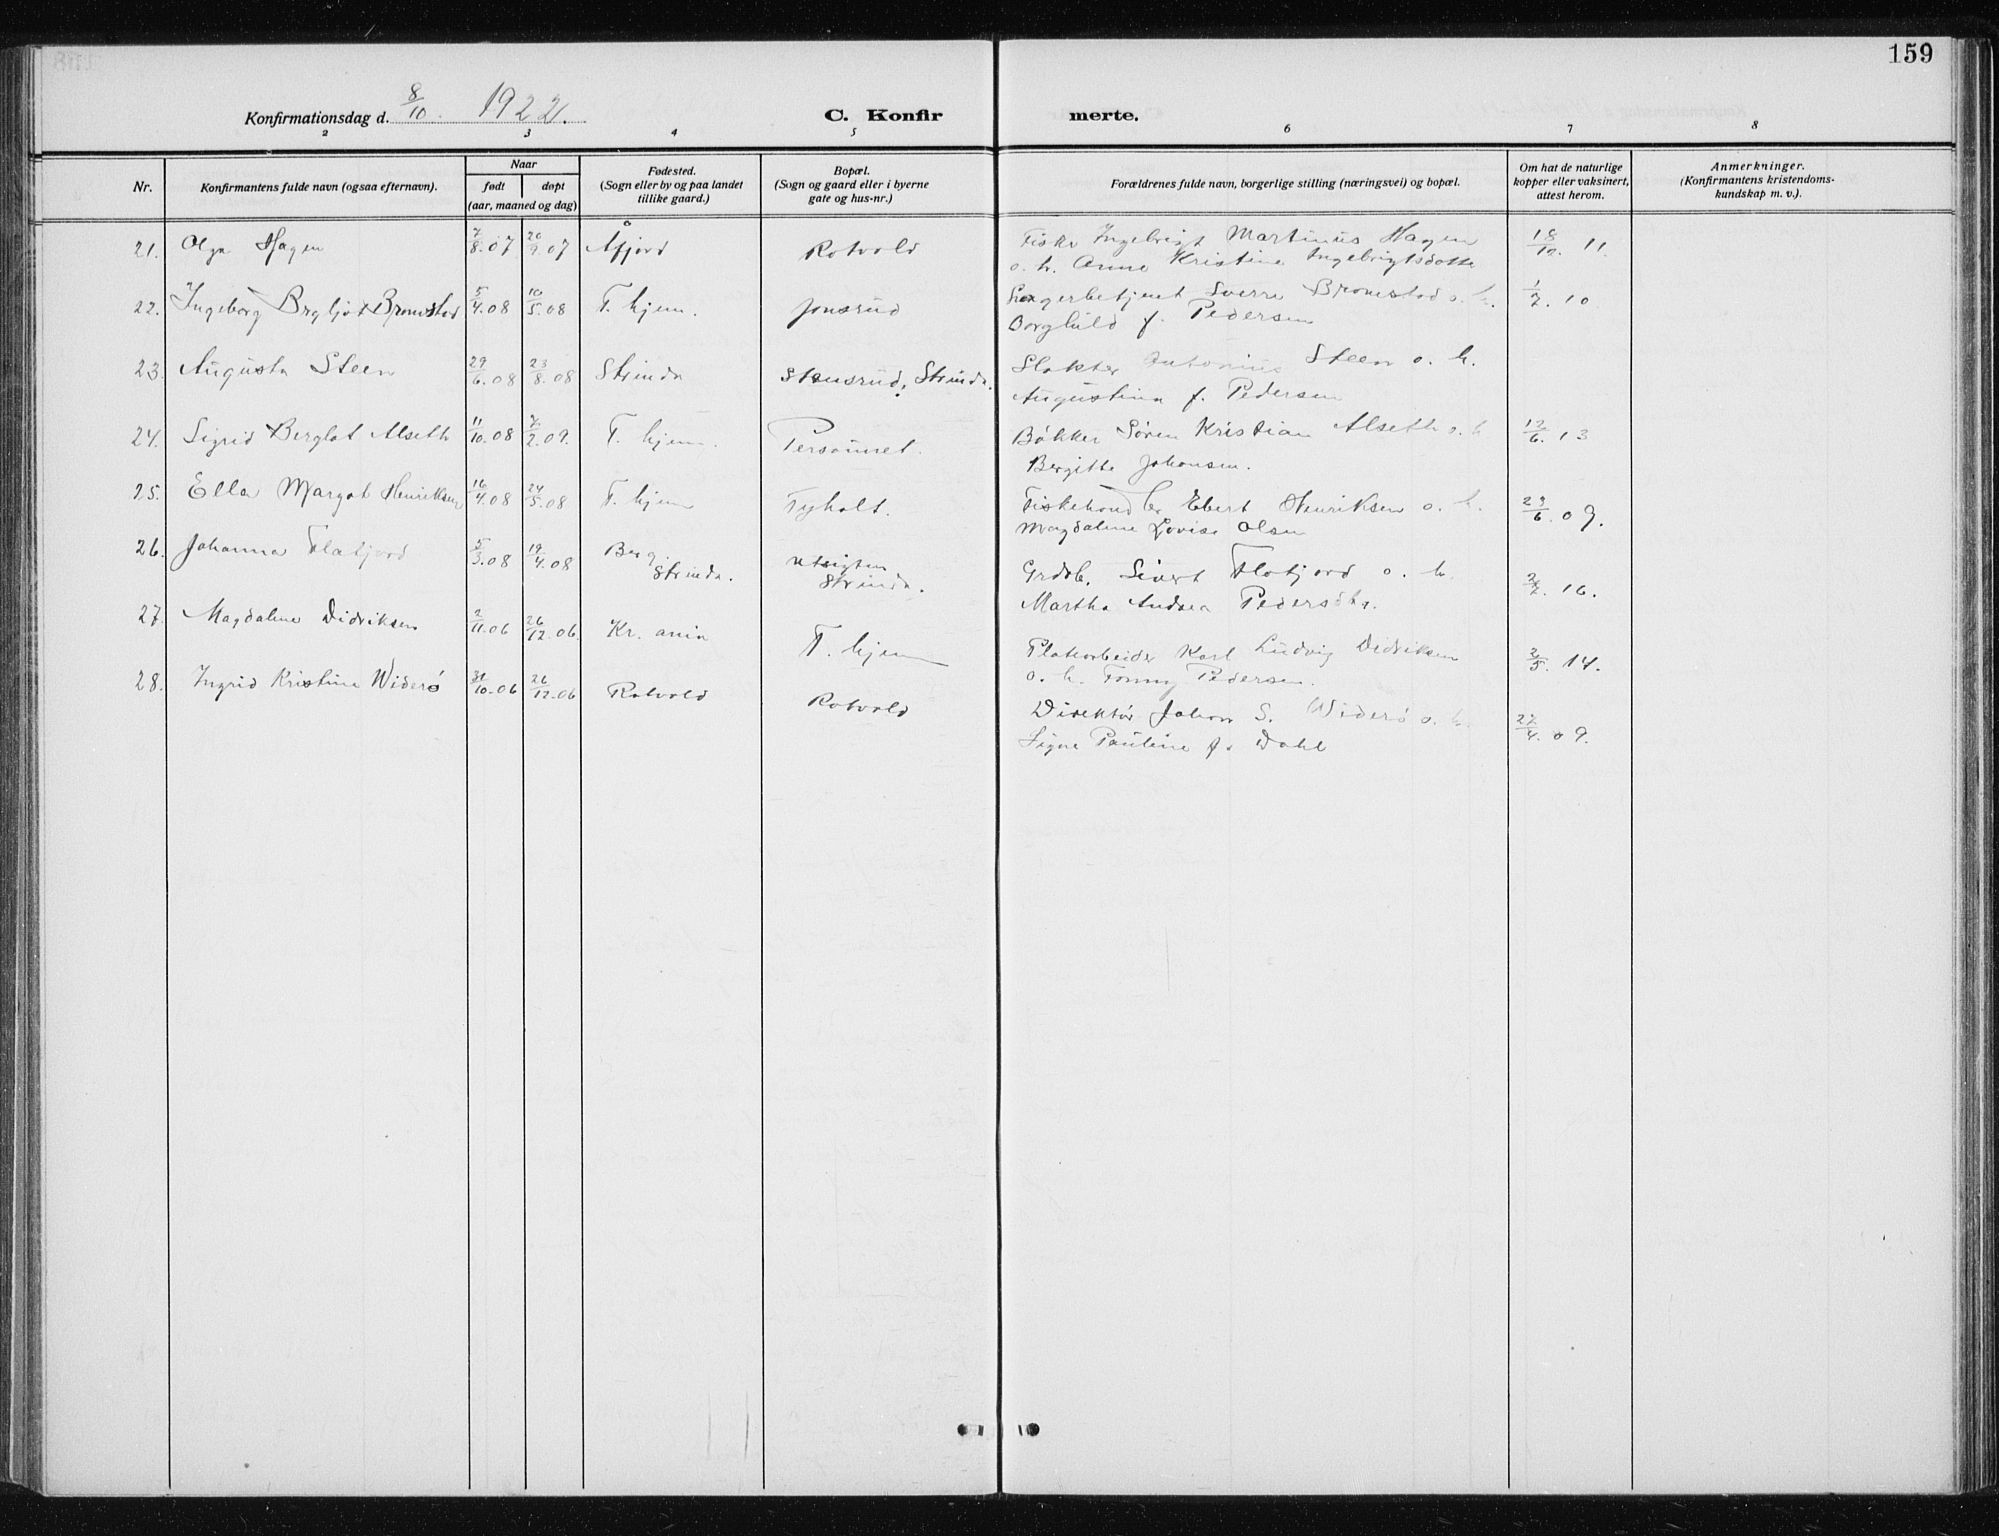 159
Konfirmationsdag d. 8/10 1922.
C. Konfirmerte.
2 3 4 5 6 7 8
Nr.
Konfirmantens fulde navn (ogsaa efternavn).
Naar
født
døpt
(aar, maaned og dag)
Fødested.
(Sogn eller by og paa landet
tillike gaard.)
Bopæl.
(Sogn og gaard eller i byerne
gate og hus-nr.)
Forældrenes fulde navn, borgerlige stilling (næringsvei) og bopæl.
Om hat de naturlige
kopper eller vaksinert,
attest herom.
Anmerkninger.
(Konfirmantens kristendoms-
kundskap m. v.).
21. Olga Hagen 7/8.07 20/9.07 Åfjord Rotvold Fisker Ingebrigt Martinus Hagen 18/10. 11.
o. h. Anne Kristine Ingebrigtsdotter
22. Ingeborg Bergljot Bromstad 5/4.08 10/5.08 T. hjem. Jonsrud Sverre Bromstad o. h. 1/7. 10
Borghild f. Pedersen
23. Augusta Steen 29/6.08 23/8.08 Strinda Stensrud, Strinda. Slakter Antonius Steen o. h.
Augustina f. Pedersen
24. Sigrid Berglot Alseth 11/10.08 7/2.09. T. hjem. Persaunet. Bøkker Søren Kristian Alseth o. h 12/6. 13
Bergitte Johansen.
25. Ella Margot Henriksen 16/4.08 24/5.08 T. hjem Tyholt. Fiskehandler Ebert Henriksen o. h. 29/6. 09.
Magdalene Lovise Olsen
26. Johanna Flatjord 5/3.08 19/4.08 Berg Strinda. Utsigten Strinda. Grdbr. Sivert Flatjord o. h. 2/7. 16.
Martha Andrea Pedersdtr.
27. Magdalene Didriksen 2/11.06 26/12.06. Kr. ania T. hjem Karl Ludvig Didriksen 3/5. 14.
o. h. Fanny Pedersen.
28. Ingrid Kristine Widerø 31/10.06 26/12.06 Rotvold Rotvold Direktør Johan S. Widerø o. h. 27/4. 09.
Signe Pauline f. Dahl